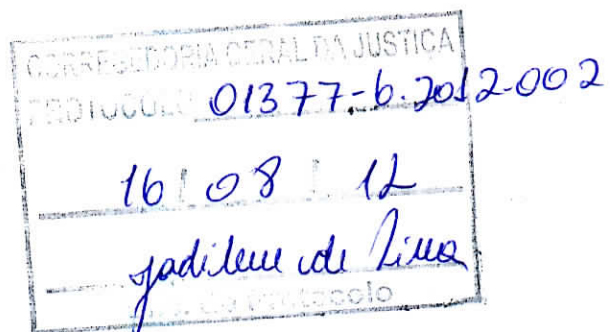 CORREGEDORIA GERAL DA JUSTIÇA
PROTOCOLO 01377-6.2012.002
16 / 08 / 12
de Lima
de Protocolo